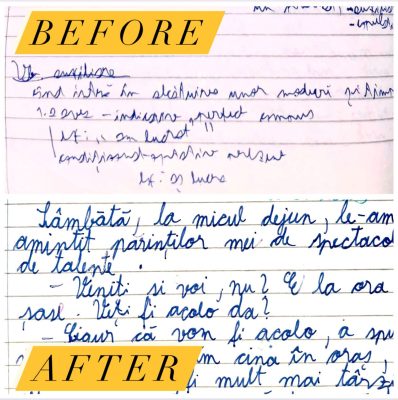 BEFORE
Vb. auxiliare
când intră în alcătuirea unor moduri și timp
1. a avea - indicativ, perfect compus
Ex: „am lucrat"
condițional-optativ prezent
Ex: aș lucra
Sâmbătă, la micul dejun, le-am
amintit părinților mei de spectacol
de talente.
- Veniți si voi, nu? E la ora
șase. Veți fi acolo da?
- Sigur că vom fi acolo, a spu
cina în oraș,
fi mult mai târz
AFTER